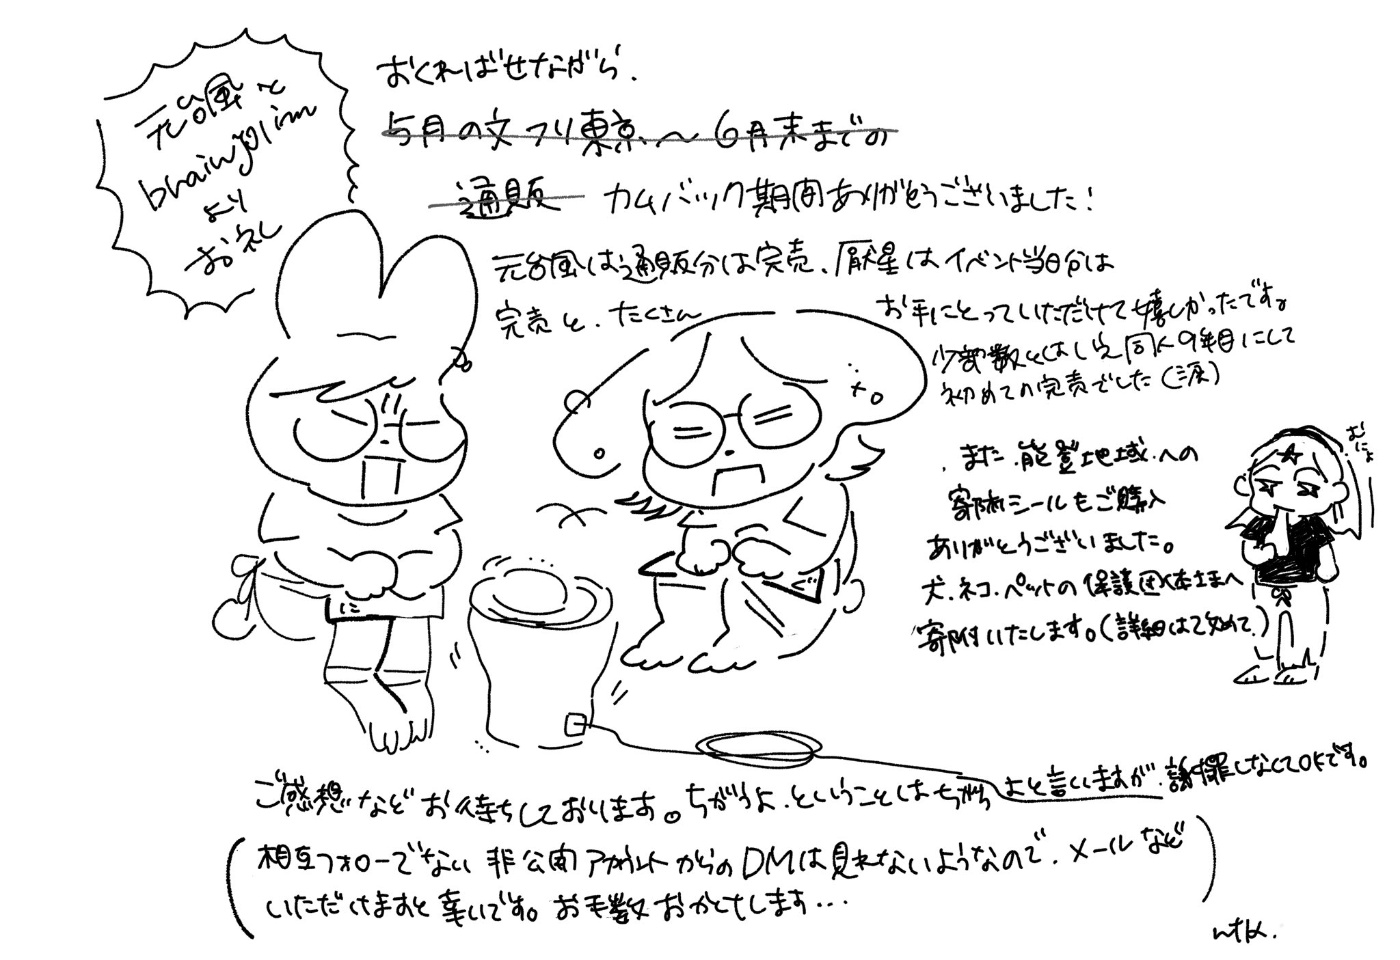 元台風と
より
お礼
おくればせながら、
5月の文フリ東京、〜6月末までの
通販 カムバック期間ありがとうございました!
元台風は通販分は完売、厭星はイベント当日分は
完売と、たくさん
お手にとっていただけて嬉しかったです。
少部数とはいえ同人9年目にして
初めての完売でした(涙)
また、能登地域への
寄附シールもご購入
ありがとうございました。
犬、ネコ、ペットの保護団体さまへ
寄附いたします。(詳細は改めて)
むにょ
ご感想などお待ちしております。ちがうよ、ということはちがうよと言いますが、謝罪しなくてOKです。
(相互フォローでない非公開アカウントからのDMは見れないようなので、メールなど
いただけますと幸いです。お手数おかけします…)